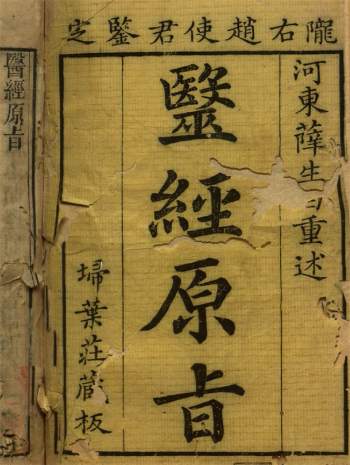 隴右趙使君鑒定
河東薛生白重述
毉經原旨
埽葉莊藏板
醫經原旨